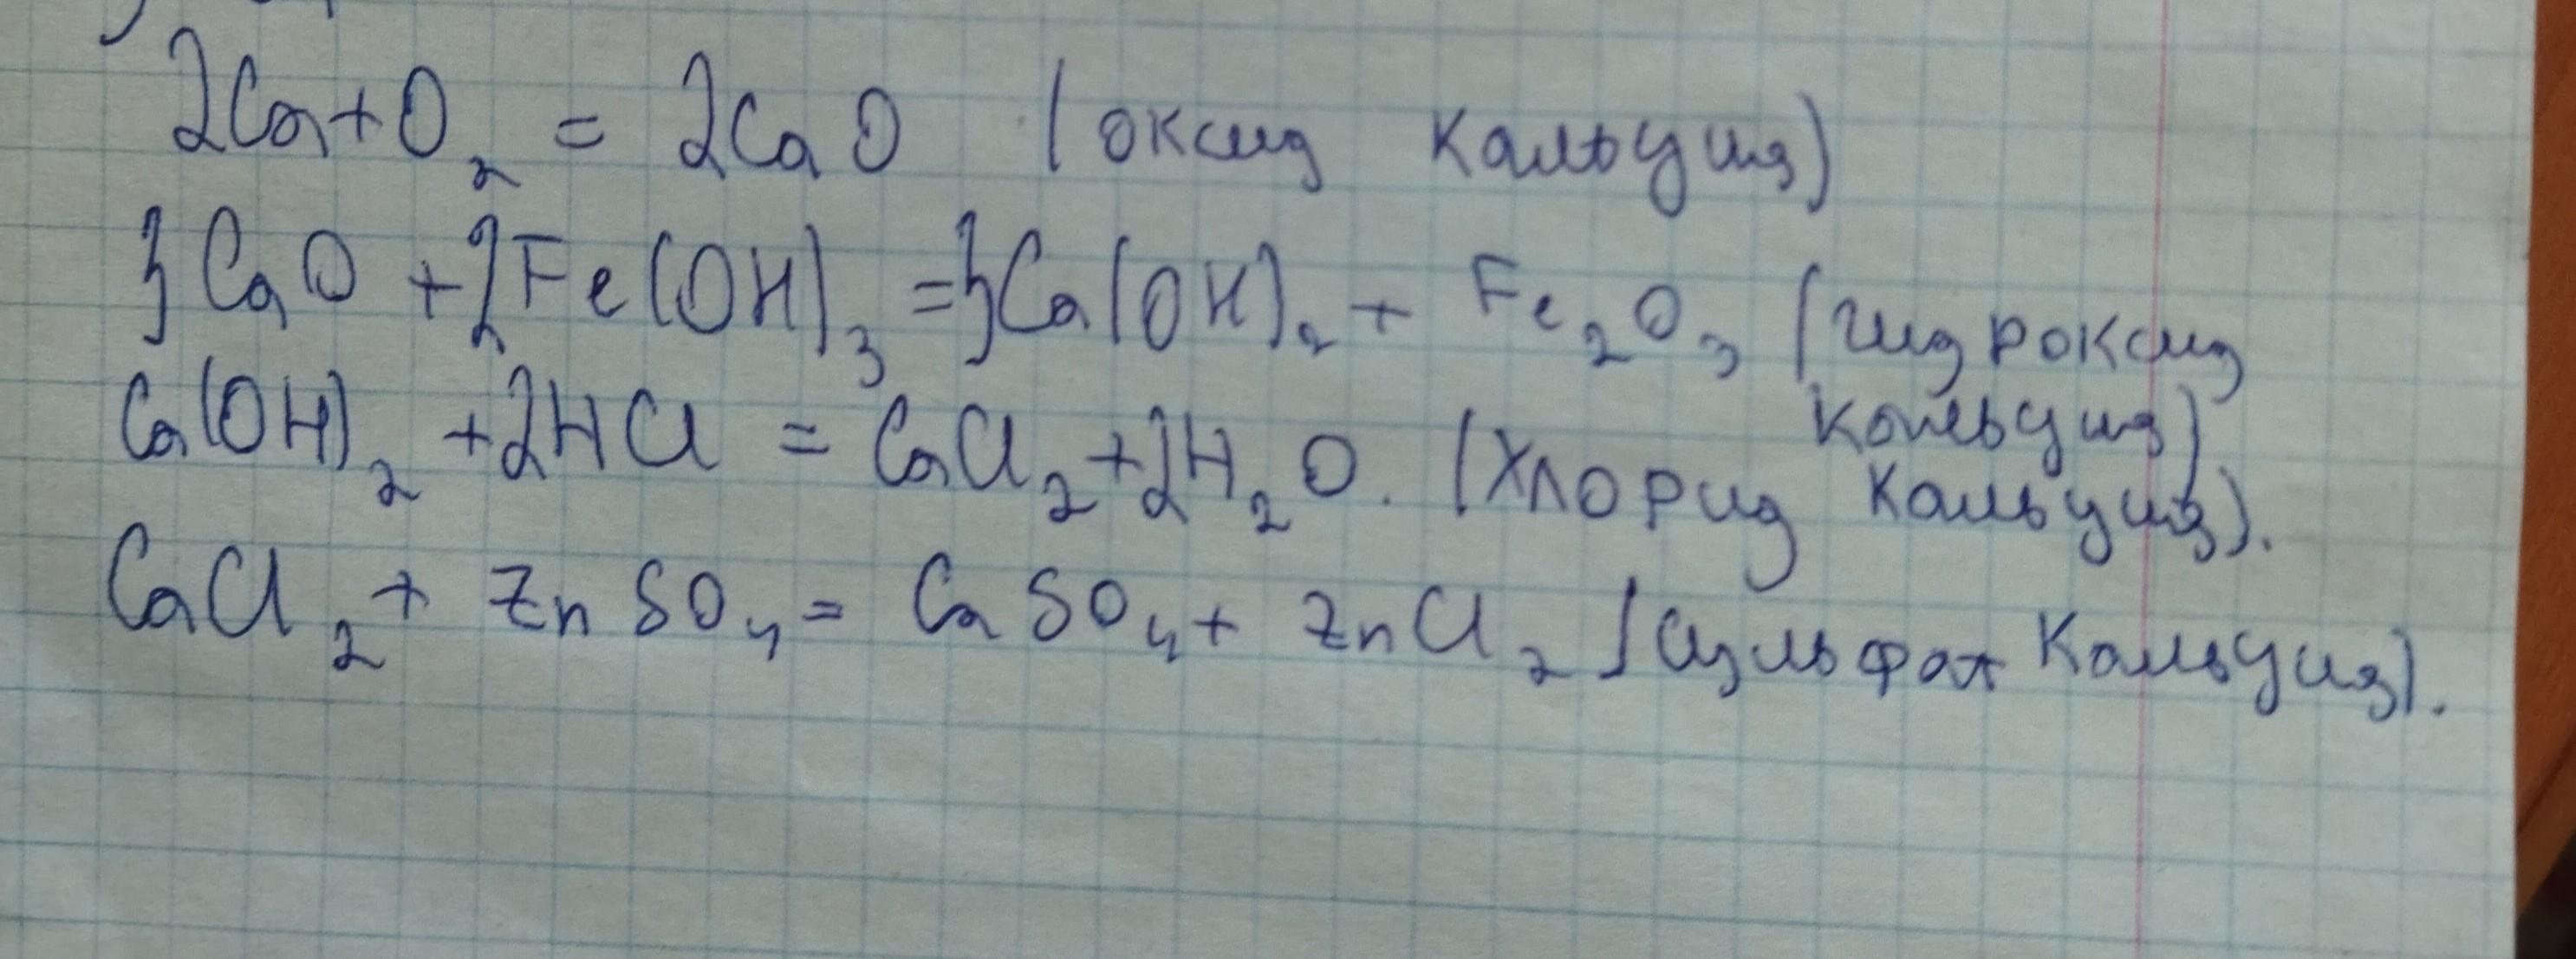 2Ca+O₂ = 2CaO (оксид кальция)
3CaO +2Fe(OH)₃ =3Ca(OH)₂ + Fe₂O₃ (гидроксид
кальция)
Ca(OH)₂ +2HCl = CaCl₂+2H₂O. (хлорид кальция).
CaCl₂ + ZnSO₄ = CaSO₄ + ZnCl₂ (сульфат кальция).